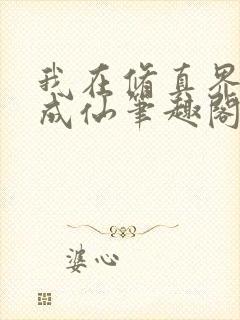 我在修真界
成仙笔趣阁
婆心